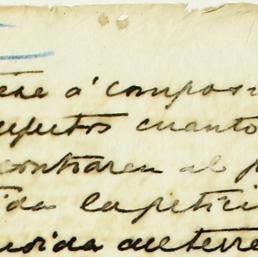 ese á compos
efectos cuanto
contraren al p
tida la petici
cuoida del terre